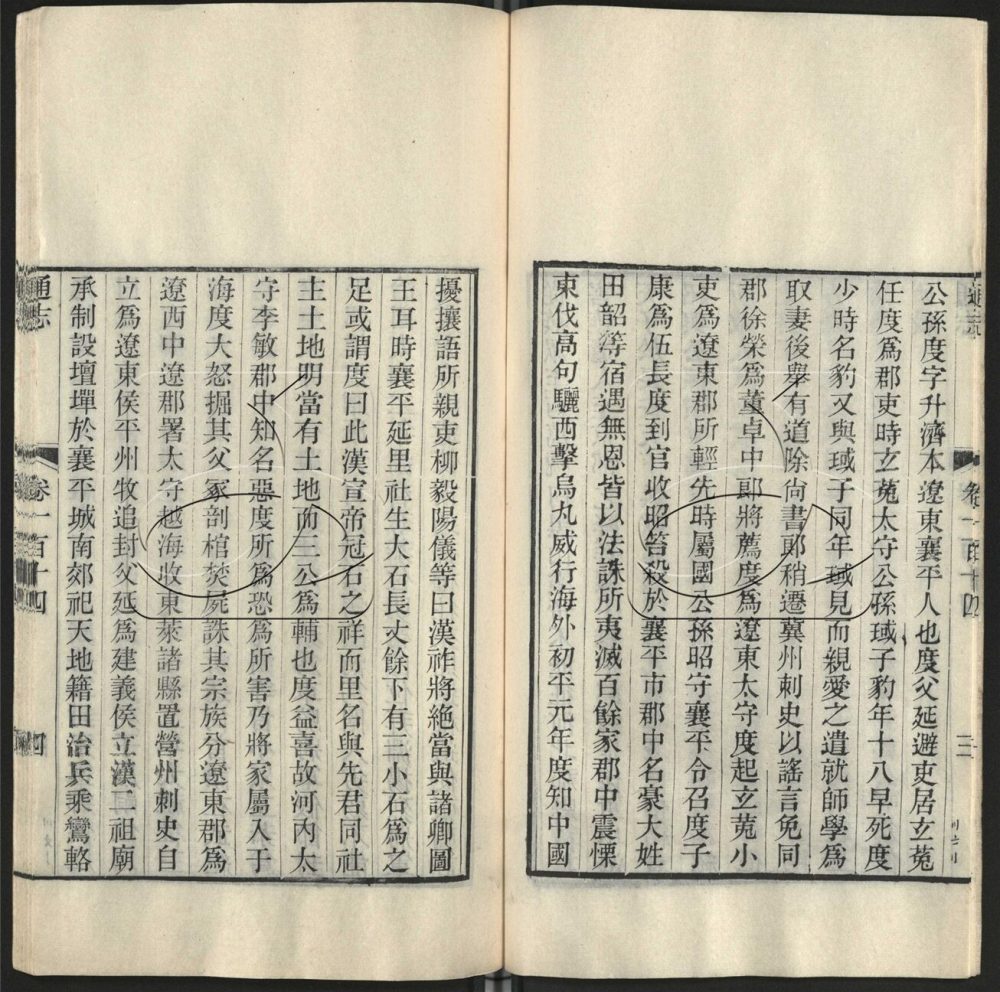 通志
卷一百十四
三
公孫度字升濟本遼東襄平人也度父延避吏居玄菟
任度爲郡吏時玄菟太守公孫琙子豹年十八早死度
少時名豹又與琙子同年琙見而親愛之遣就師學爲
取妻後舉有道除尙書郎稍遷冀州刺史以謠言免同
郡徐榮爲董卓中郎將薦度爲遼東太守度起玄菟小
吏爲遼東郡所輕先時屬國公孫昭守襄平令召度子
康爲伍長度到官收昭笞殺於襄平市郡中名豪大姓
田韶等宿遇無恩皆以法誅所夷滅百餘家郡中震慄
東伐高句驪西擊烏丸威行海外初平元年度知中國
擾攘語所親吏柳毅陽儀等曰漢祚將絕當與諸卿圖
王耳時襄平延里社生大石長丈餘下有三小石爲之
足或謂度曰此漢宣帝冠石之祥而里名與先君同社
主土地明當有土地而三公爲輔也度益喜故河內太
守李敏郡中知名惡度所爲恐爲所害乃將家屬入于
海度大怒掘其父冢剖棺焚屍誅其宗族分遼東郡爲
遼西中遼郡署太守越海收東萊諸縣置營州刺史自
立爲遼東侯平州牧追封父延爲建義侯立漢二祖廟
承制設壇墠於襄平城南郊祀天地籍田治兵乘鸞輅
通志
卷一百十四
四